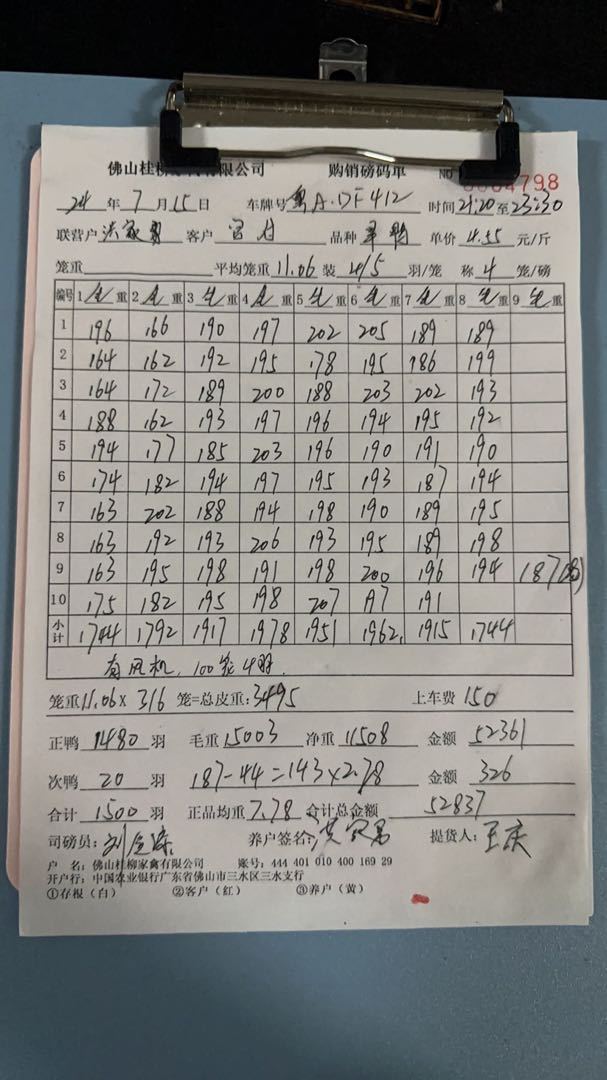 佛山桂柳家禽有限公司 购销磅码单 NO
24 年 7 月 15 日 车牌号 粤A·DF412 时间 21:20 至 23:30
联营户 客户 品种 单价 4.55 元/斤
笼重 平均笼重 11.06 装 4/5 羽/笼 称 4 笼/磅
编号 1 毛 重 2 毛 重 3 毛 重 4 毛 重 5 毛 重 6 毛 重 7 毛 重 8 毛 重 9 毛 重
1 196 166 190 197 202 205 189 189
2 164 162 192 195 178 195 186 199
3 164 172 189 200 188 203 202 193
4 188 162 193 197 196 194 195 192
5 194 177 185 203 196 190 191 190
6 174 182 194 197 195 193 187 194
7 163 202 188 194 198 190 189 195
8 163 192 193 206 193 195 189 198
9 163 195 198 191 198 200 196 194 187
10 175 182 195 198 207 197 191
小计 1744 1792 1917 1978 1951 1962 1915 1744
有风机，100笼4羽.
笼重 11.06 x 316 笼=总皮重: 3495 上车费 150
正鸭 1480 羽 毛重 15003 净重 11508 金额 52361
次鸭 20 羽 187-44=143x2.28 金额 326
合计 1500 羽 正品均重 7.78 合计总金额 52837
司磅员: 养户签名: 提货人: 王庆
户 名: 佛山桂柳家禽有限公司 账号: 444 401 010 400 169 29
开户行: 中国农业银行广东省佛山市三水区三水支行
①存根（白） ②客户（红） ③养户（黄）